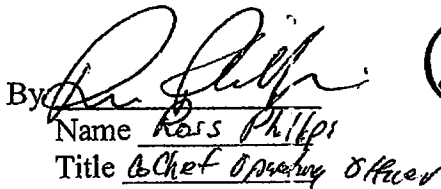 By
Name Ross Phillips
Title Chief Operating Officer